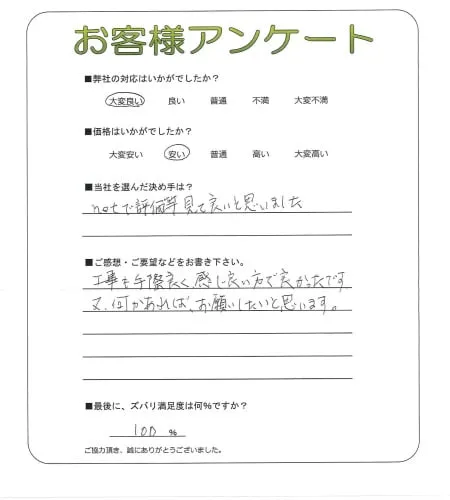 お客様アンケート
■弊社の対応はいかがでしたか？
大変良い 良い 普通 不満 大変不満
■価格はいかがでしたか？
大変安い 安い 普通 高い 大変高い
■当社を選んだ決め手は？
netで評価等見て良いと思いました
■ご感想・ご要望などをお書き下さい。
工事も手際良く感じ良い方で良かったです
又、何かあれば、お願いしたいと思います。
■最後に、ズバリ満足度は何％ですか？
100 ％
ご協力頂き、誠にありがとうございました。